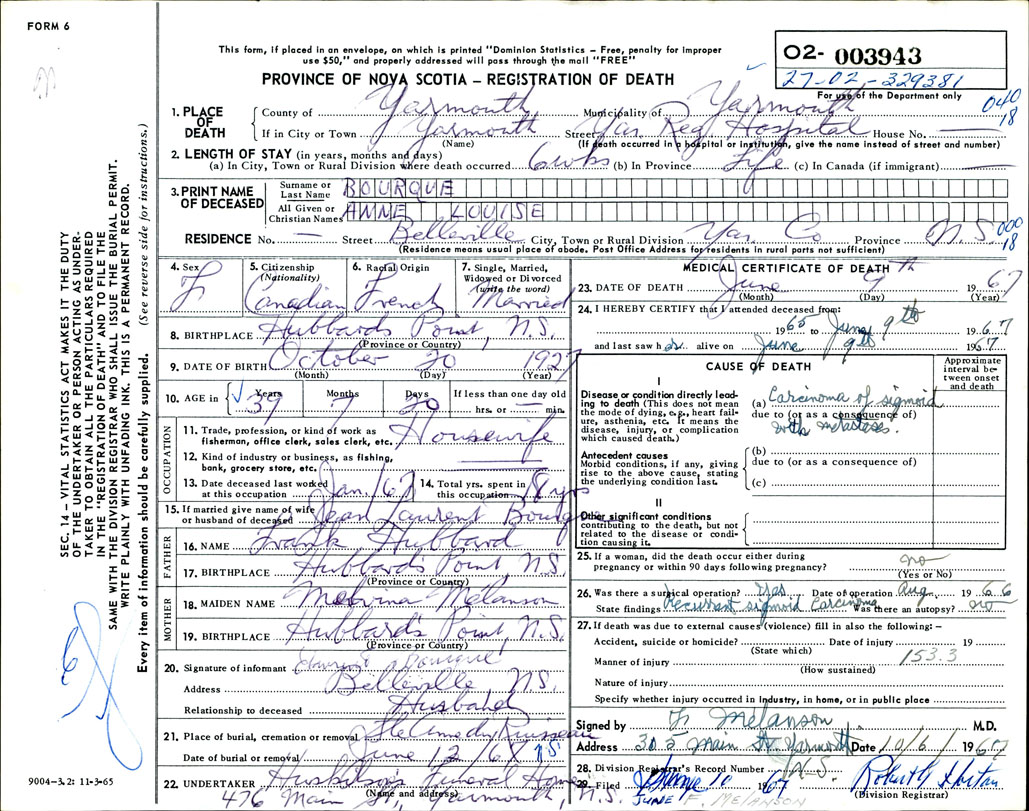 FORM 6
This form, if placed in an envelope, on which is printed "Dominion Statistics – Free, penalty for improper
use $50," and properly addressed will pass through the mail "FREE"
PROVINCE OF NOVA SCOTIA – REGISTRATION OF DEATH
02- 003943
27-02-329381
For use of the Department only
040
18
1. PLACE OF DEATH
County of Yarmouth Municipality of Yarmouth
If in City or Town Yarmouth Street Yar Reg. Hospital House No.
(Name) (If death occurred in a hospital or institution, give the name instead of street and number)
2. LENGTH OF STAY (in years, months and days)
(a) In City, Town or Rural Division where death occurred 6 wks (b) In Province Life (c) In Canada (if immigrant) —
3. PRINT NAME OF DECEASED
Surname or Last Name BOURQUE
All Given or Christian Names ANNE LOUISE
RESIDENCE No. — Street Belleville City, Town or Rural Division Yar Co Province N.S.
000
18
(Residence means usual place of abode. Post Office Address for residents in rural parts not sufficient)
4. Sex F
5. Citizenship (Nationality) Canadian
6. Racial Origin French
7. Single, Married, Widowed or Divorced (write the word) Married
8. BIRTHPLACE Hubbards Point, N.S.
(Province or Country)
9. DATE OF BIRTH October 20 1927
(Month) (Day) (Year)
10. AGE in Years 39 Months 7 Days 20 If less than one day old
hrs. or — min.
OCCUPATION
11. Trade, profession, or kind of work as
fisherman, office clerk, sales clerk, etc. Housewife
12. Kind of industry or business, as fishing,
bank, grocery store, etc.
13. Date deceased last worked
at this occupation Jan./67
14. Total yrs. spent in
this occupation 18 yrs
15. If married give name of wife
or husband of deceased Jean Laurent Bourque
FATHER
16. NAME Frank Hubbard
17. BIRTHPLACE Hubbards Point N.S.
(Province or Country)
MOTHER
18. MAIDEN NAME Melvina Melanson
19. BIRTHPLACE Hubbards Point, N.S.
(Province or Country)
20. Signature of informant Bourque
Address Belleville, N.S.
Relationship to deceased Husband
21. Place of burial, cremation or removal Ste Anne du Ruisseau
Date of burial or removal June 12/67 N.S.
22. UNDERTAKER Huskilson's Funeral Home
(Name and address)
476 Main St., Yarmouth, N.S.
MEDICAL CERTIFICATE OF DEATH
23. DATE OF DEATH June 9th 1967
(Month) (Day) (Year)
24. I HEREBY CERTIFY that I attended deceased from:
1965 to June 9th 1967
and last saw her alive on June 9th 1967
CAUSE OF DEATH
Approximate interval between onset and death
I
Disease or condition directly leading to death (This does not mean
the mode of dying, e.g., heart failure, asthenia, etc. It means the
disease, injury, or complication
which caused death.)
(a) Carcinoma of sigmoid
due to (or as a consequence of)
with metastases.
Antecedent causes
Morbid conditions, if any, giving
rise to the above cause, stating
the underlying condition last.
(b)
due to (or as a consequence of)
(c)
II
Other significant conditions
contributing to the death, but not
related to the disease or condition causing it.
25. If a woman, did the death occur either during
pregnancy or within 90 days following pregnancy? no
(Yes or No)
26. Was there a surgical operation? Yes Date of operation Aug. 1966
State findings Recurrent sigmoid Carcinoma Was there an autopsy? no
27. If death was due to external causes (violence) fill in also the following: –
Accident, suicide or homicide? Date of injury 19
(State which)
Manner of injury 153.3
(How sustained)
Nature of injury
Specify whether injury occurred in industry, in home, or in public place
Signed by F. Melanson M.D.
Address 305 Main St Yarmouth Date 10/6/1967
N.S.
28. Division Registrar's Record Number
29. Filed June 10 1967
(Division Registrar)
JUNE F. MELANSON
SEC. 14 – VITAL STATISTICS ACT MAKES IT THE DUTY
OF THE UNDERTAKER OR PERSON ACTING AS UNDERTAKER TO OBTAIN ALL THE PARTICULARS REQUIRED
IN THE "REGISTRATION OF DEATH" AND TO FILE THE
SAME WITH THE DIVISION REGISTRAR WHO SHALL ISSUE THE BURIAL PERMIT.
WRITE PLAINLY WITH UNFADING INK. THIS IS A PERMANENT RECORD.
Every item of information should be carefully supplied. (See reverse side for instructions.)
9004-3.2: 11-3-65